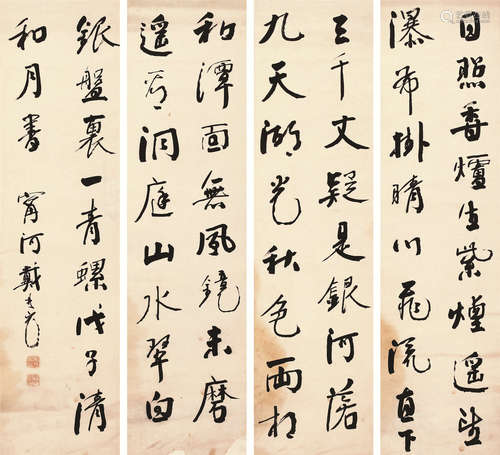 日照香爐生紫煙遥望
瀑布掛晴川飛流直下
三千丈疑是銀河落
九天湖光秋色两相
和潭面無風鏡未磨
遥看洞庭山水翠白
銀盤裏一青螺戊子清
和月書 甯河戴